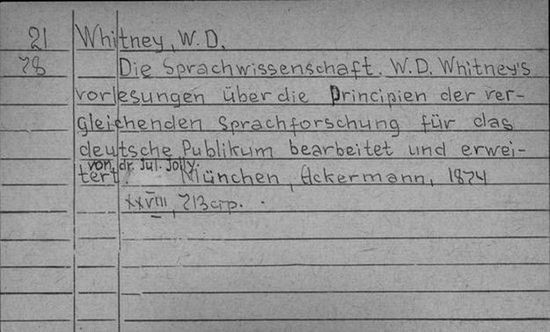 21 Whitney, W.D.
78 Die Sprachwissenschaft. W.D. Whitney's
vorlesungen über die Principien der ver-
gleichenden Sprachforschung für das
deutsche Publikum bearbeitet und erwei-
von dr. Jul. Jolly.
tert. München, Ackermann, 1874
XXVIII, 713 стр.